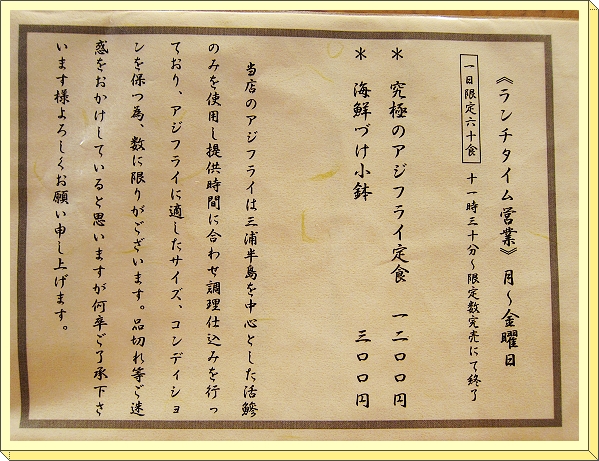 《ランチタイム営業》 月～金曜日
一日限定六十食 十一時三十分～限定数完売にて終了
＊ 究極のアジフライ定食 一二〇〇円
＊ 海鮮づけ小鉢 三〇〇円
当店のアジフライは三浦半島を中心とした活鯵
のみを使用し提供時間に合わせ調理仕込みを行っ
ており、アジフライに適したサイズ、コンディショ
ンを保つ為、数に限りがございます。品切れ等ご迷
惑をおかけしていると思いますが何卒ご了承下さ
います様よろしくお願い申し上げます。